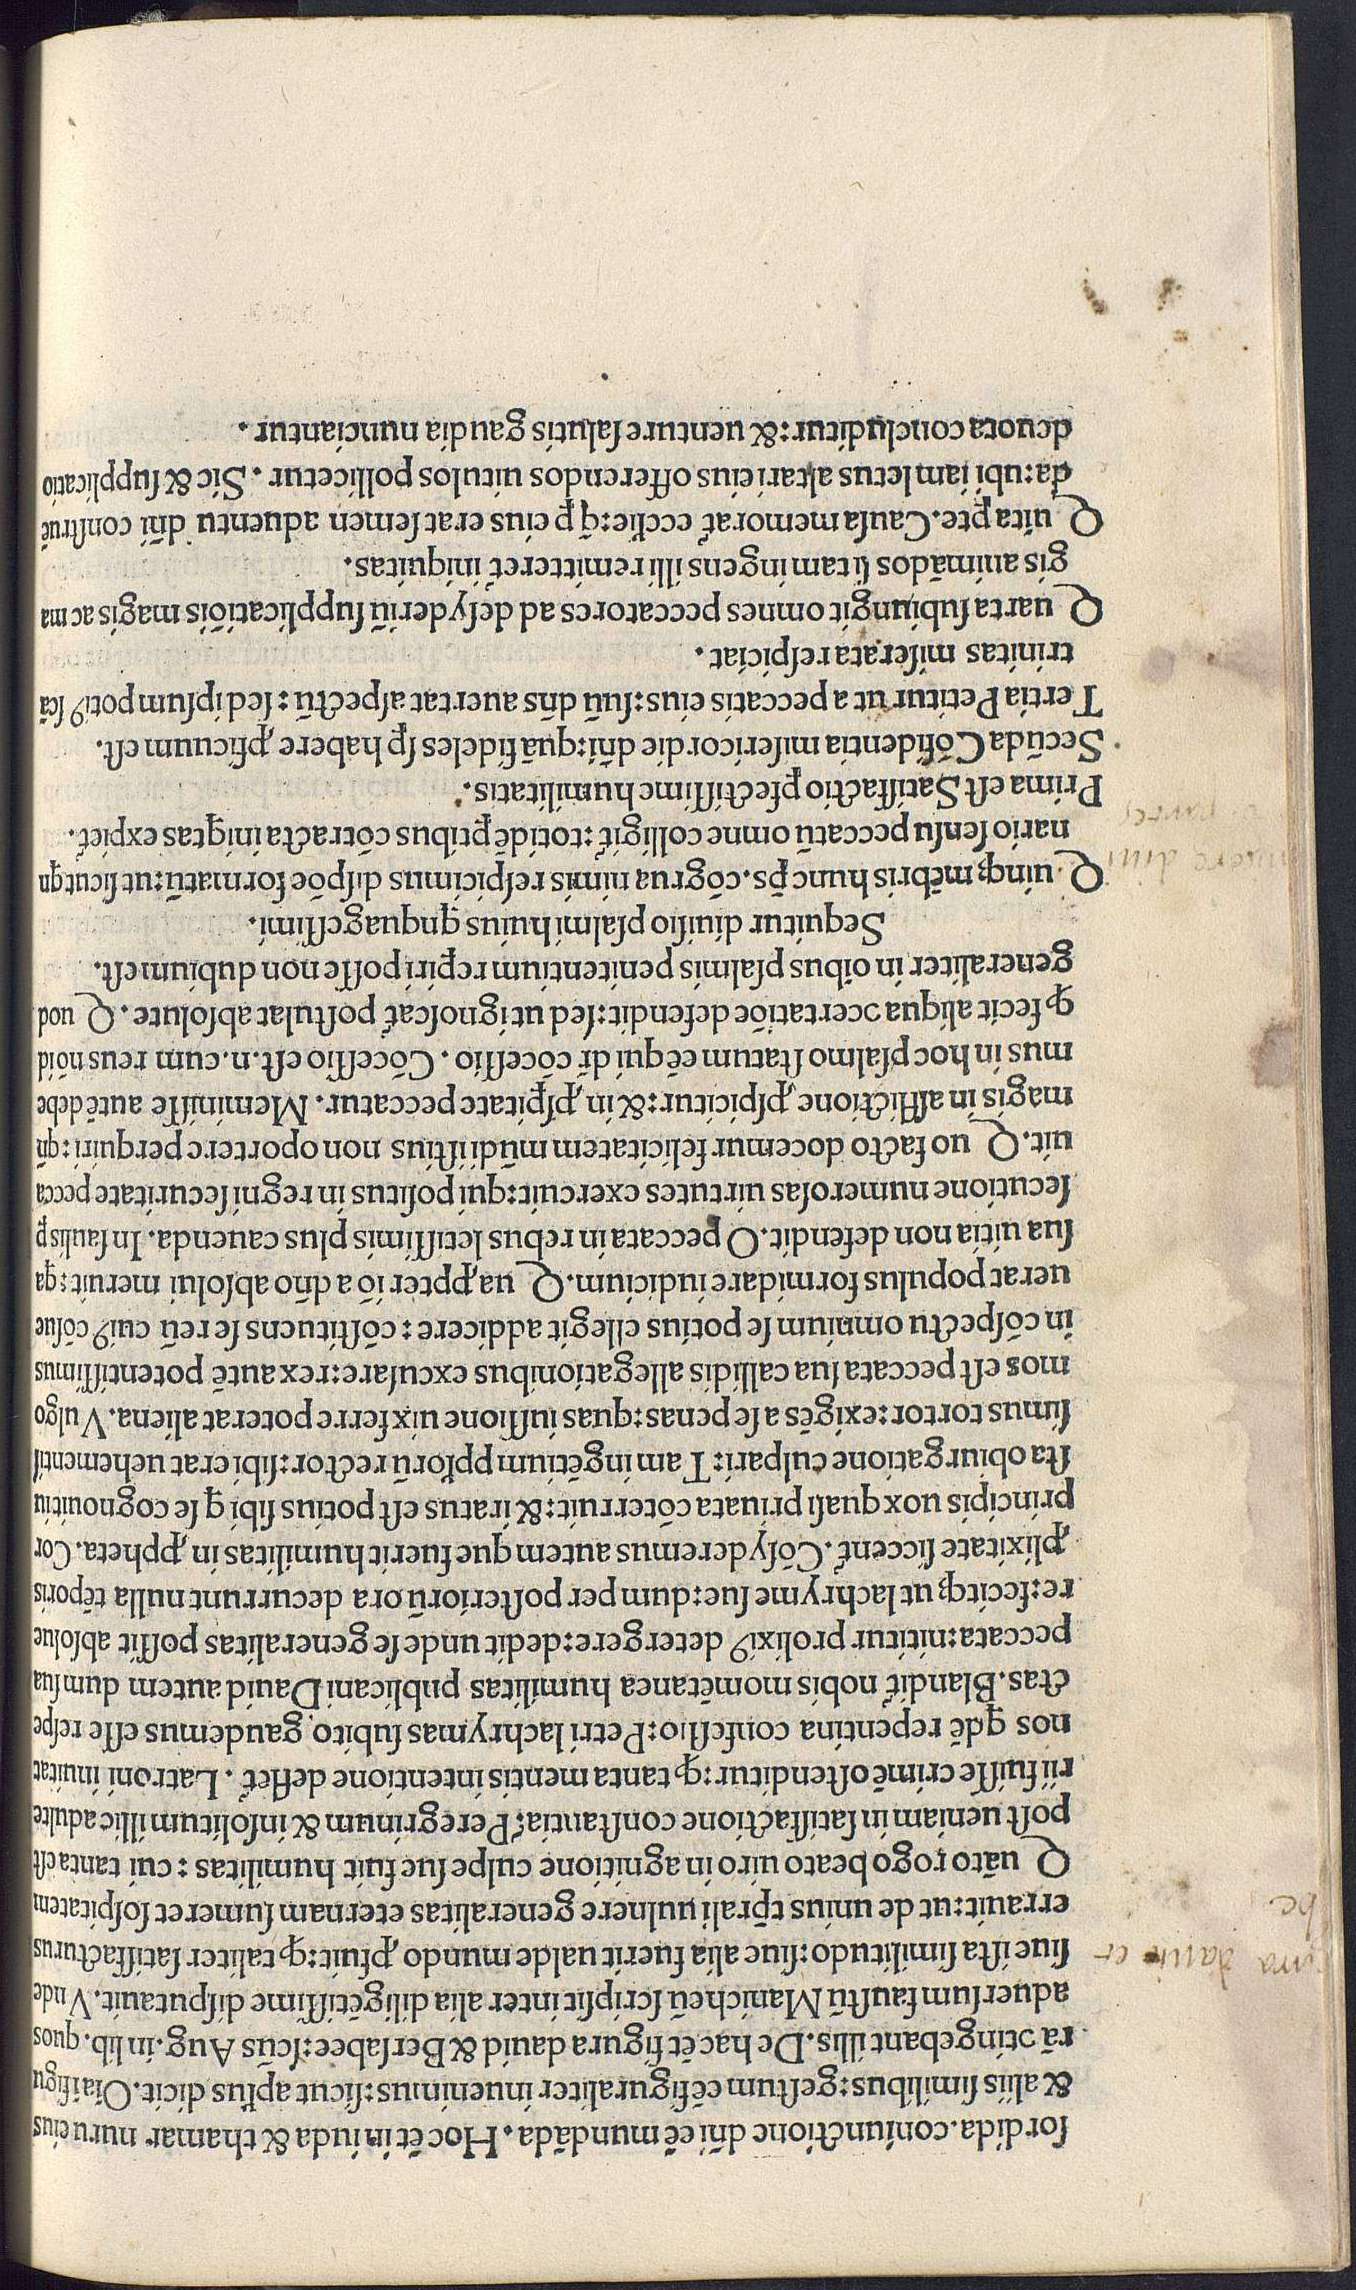 ſordida.coniunctione dñi eē mundāda. Hoc ēt in iuda & thamar nuru eius
& aliis ſimilibus: geſtum eē figuraliter inuenimus: ſicut aplus dicit. Oia ī figu
rā ↄtingebant illis. De hac ēt figura dauid & Berſabee: ſcūs Aug. in lib. quos
aduerſum fauſtū Manicheū ſcripſit inter alia diligētiſſime diſputauit. Vnde
ſiue iſta ſimilitudo: ſiue alia fuerit ualde mundo ꝓfuit: ꝙ taliter ſatiſfacturus
errauit: ut de unius tp̄rali uulnere generalitas eternam ſumeret ſoſpitatem
Q uāto rogo beato uiro in agnitione culpe ſue fuit humilitas: cui tanta eſt
poſt ueniam in ſatiſfactione conſtantia? Peregrinum & inſolitum illic adulte
rii fuiſſe crimē oſtenditur: ꝙ tanta mentis intentione deflet̄. Latroni inuitat
nos qdē repentina confeſſio: Petri lachrymas ſubito gaudemus eſſe reſpe
ctas. Blandit̄ nobis momētanea humilitas publicani Dauid autem dum ſua
peccata: nititur prolixiꝰ detergere: dedit unde ſe generalitas poſſit abſolue
re: fecitq; ut lachryme ſue: dum per poſteriorū ora decurrunt nulla tēporis
ꝓlixitate ſiccent̄. Cōſyderemus autem que fuerit humilitas in ꝓpheta. Cor
principis uox quaſi priuata cōterruit: & iratus eſt potius ſibi q̄ ſe cognouit iu
ſta obiurgatione culpari: Tam ingētium pplorū rector: ſibi erat uehementiſ
ſimus tortor: exigēs a ſe penas: quas iuſſione uix ferre poterat aliena. Vulgo
mos eſt peccata ſua callidis allegationibus excuſare: rex autē potentiſſimus
in cōſpectu omnium ſe potius ellegit addicere: cōſtituens ſe reū cuiꝰ cōſue
uerat populus formidare iudicium. Q ua ꝓpter iō a dño abſolui meruit: qa
ſua uitia non defendit. O peccata in rebus letiſſimis plus cauenda. In ſaulis ꝑ
ſecutione numeroſas uirtutes exercuit: qui poſitus in regni ſecuritate pecca
uit. Q uo facto docemur felicitatem mūdi iſtius non oportere perquiri: qñ
magis in afflictione ꝓſpicitur: & in ꝓſperitate peccatur. Meminiſſe autē debe
mus in hoc pſalmo ſtatum eē qui dr̄ cōceſſio. Cōceſſio eſt.n. cum reus nō id
ꝙ fecit aliqua ↄcertatiōe defendit: ſed ut ignoſcat̄ poſtulat abſolute. Q uod
generaliter in oibus pſalmis penitentium repiri poſſe non dubium eſt.
Sequitur diuiſio pſalmi huius qnquageſſimi.
Q uinq; mēbris hunc pſ. cōgrua nimis reſpicimus diſpōe formatū: ut ſicut qn
nario ſenſu peccatū omne colligit̄: totidē ptibus cōtracta iniqtas expiet̄.
Prima eſt Satiſfactio perfectiſſime humilitatis.
Secūda Cōfidentia miſericordie dñi: quā fideles ſp habere ꝓficuum eſt.
Tertia Petitur ut a peccatis eius: ſuū dñs auertat aſpectū: ſed ipſum potiꝰ ſcā
trinitas miſerata reſpiciat.
Q uarta ſubiungit omnes peccatores ad deſyderiū ſupplicatiōis magis ac ma
gis animādos ſi tam ingens illi remitteret̄ iniquitas.
Q uita ꝑte. Cauſa memorat̄ eccl̄ie: q̄ ꝑ eius erat ſemen aduentu dñi conſtruē
da: ubi iam letus altari eius offerendos uitulos pollicetur. Sic & ſupplicatio
deuota concluditur: & uenture ſalutis gaudia nunciantur.